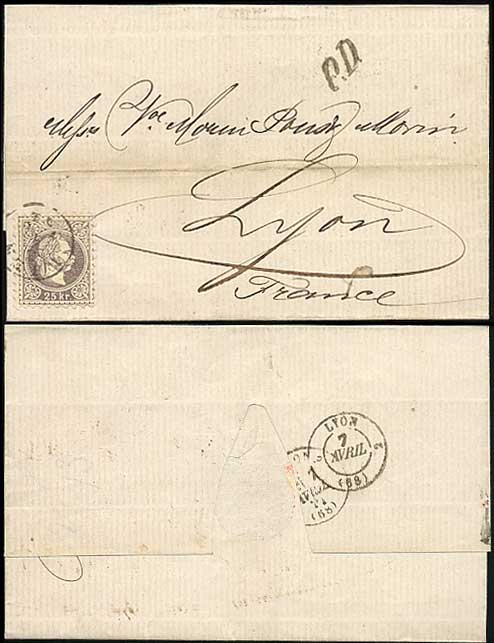 P.D.
Messrs Vve Morin Pons & Morin
Lyon
France
25 kr
LYON
7
AVRIL
2
(68)
ON
7
AVRIL
(68)